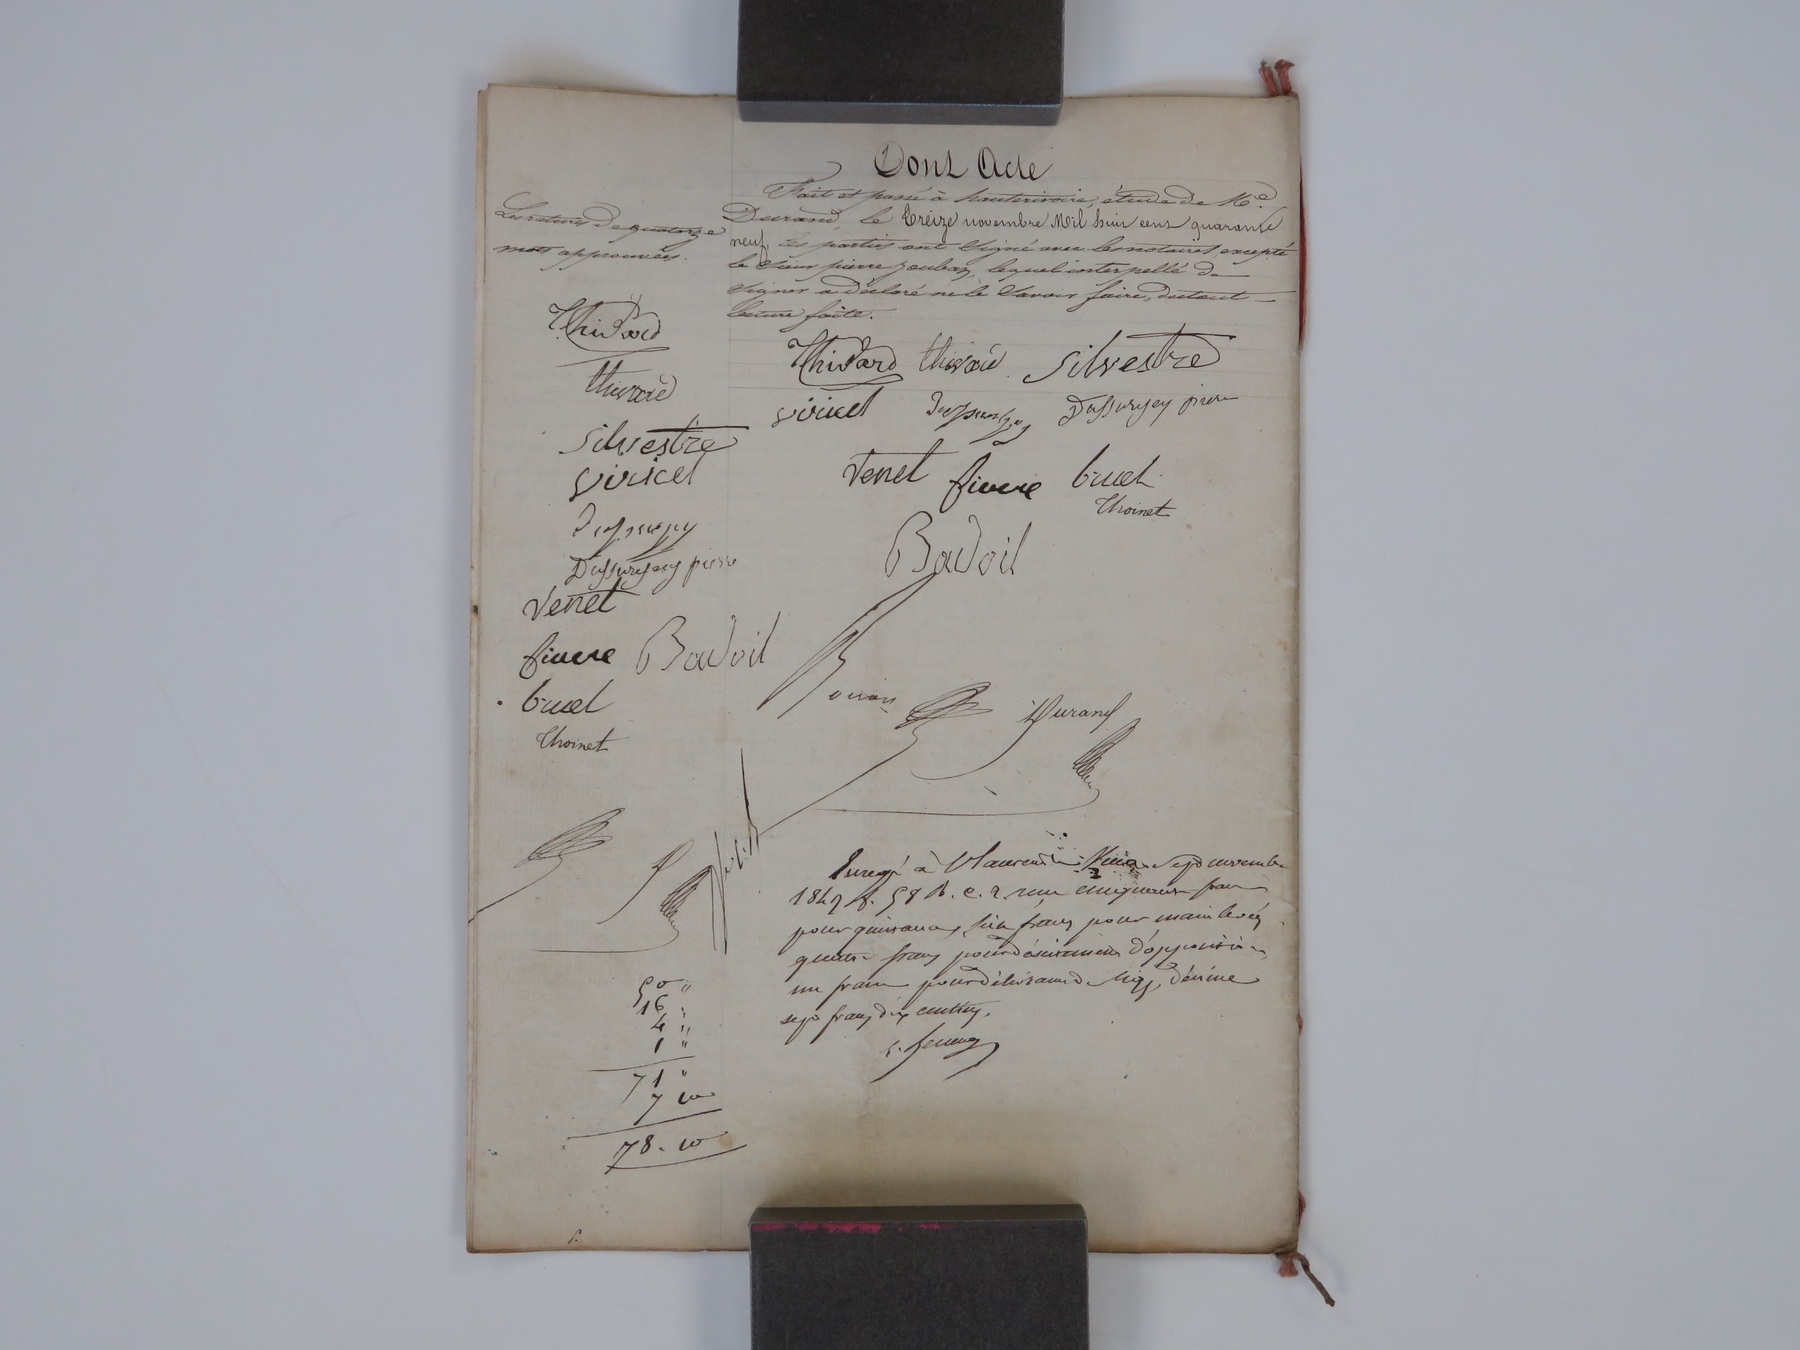 Dont Acte
Fait et passé à hauterivoire, étude de Me
Durand, le treize novembre Mil huit cent quarante
neuf, les parties ont signé avec les notaires, excepté
le sieur pierre joubay, lequel interpellé de
signer a déclaré ne le savoir faire, du tout
lecture faite.
Les ratures de quatorze
mots approuvées.
Thivard
thivard
Silvestre
viricel
Dussurgey
Dussurgey pierre
Venet
fivere Badoil
bruel
Thoinet
Thivard thivard Silvestre
viricel Dussurgey Dussurgey pierre
Venet fivere bruel
Thoinet
Badoil
Durand
Enregé à St Laurent le Vingt Sept novembre
1849 f. 58 R. c. 2 reçu cinquante francs
pour quittance, seize francs pour mainlevée,
quatre francs pour désistement d'opposition,
un franc pour décime
sept francs dix centimes.
50 "
16 "
4 "
1 "
71 "
7 10
78. 10